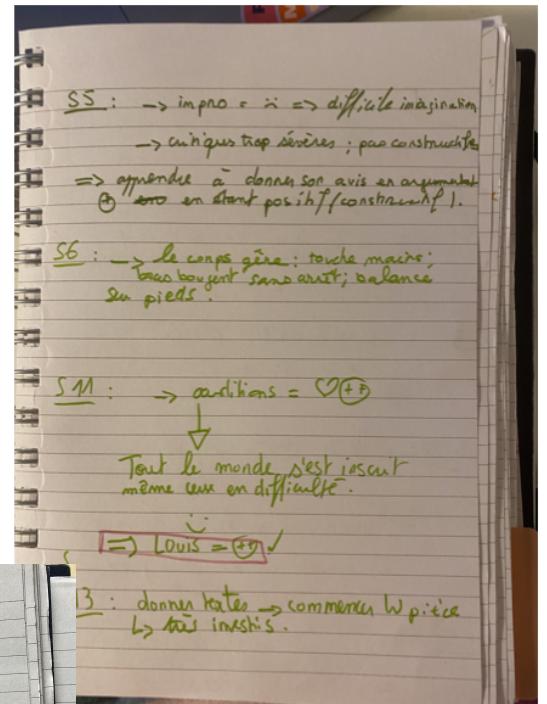 S5 : -> impro = :( => difficile imagination
-> critiques trop sévères ; pas constructifs
=> apprendre à donner son avis en argumentant
⊕ en étant positif (constructif).
S6 : -> le corps gêne : touche mains ;
bras bougent sans arrêt ; balance
sur pieds.
S11 : -> auditions = ♡(++)
Tout le monde s'est inscrit
même ceux en difficulté.
:)
=> Louis = (++) ✓
13 : donner textes -> commencer W pièce
↳ très investis.